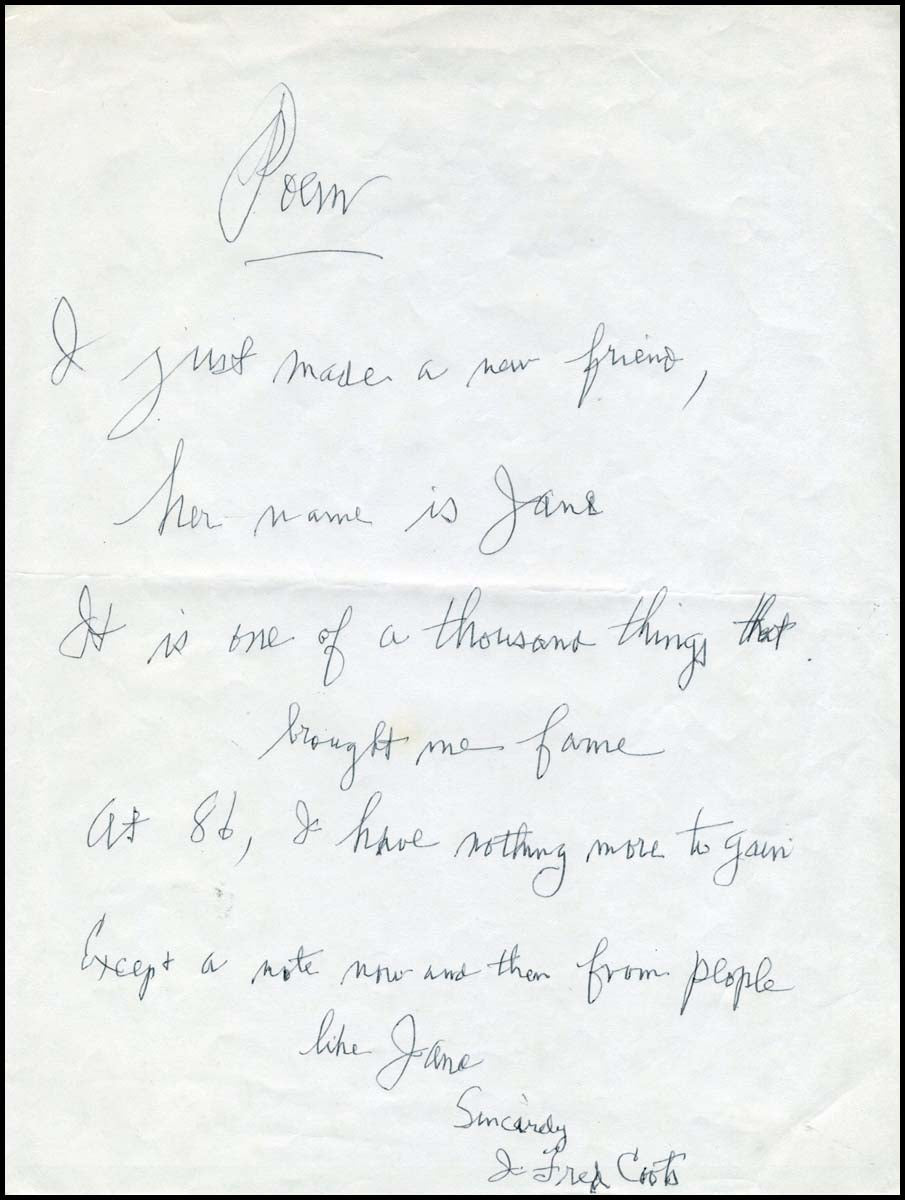 Poem
I just made a new friend,
her name is Jane
It is one of a thousand things that
brought me fame
At 86, I have nothing more to gain
Except a note now and then from people
like Jane
Sincerely
J Fred Coots